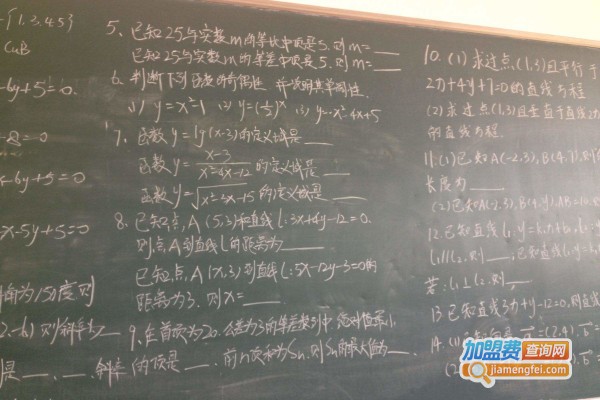 {1,3,4,5}
CuB
-6y+5=0.
-8=0
x-6y+5=0
x-5y+5=0
角为150度则
则斜率为
是__.__.斜率
5、已知25与实数m的等比中项是5.则m=___
已知25与实数m的等差中项是5.则m=___
6.判断下列函数的奇偶性 并说明其单调性.
(1) y=x²-1 (2) y=(½)ˣ (3) y=x²-4x+5
7、函数y=lg(x-3)的定义域是___
函数y=x-3/x²-4x-12的定义域是___
函数y=√x²-2x-15的定义域是___
8、已知点A(5,3)和直线l:3x+4y-12=0.
则点A到直线l的距离为___
已知点A(x,3)到直线l:5x-12y-3=0的
距离为3.则x=___
9、在首项为20.公差为3的等差数列中 绝对值最小
的项是___.前n项和为Sn.则Sn的最大值为___.
10.(1)求过点(1,3)且平行于
2x+4y+1=0的直线方程
(2)求过点(1,3)且垂直于直线2x
的直线方程.
11.(1)已知A(-2,3),B(4,7),则
长度为___
(2)已知A(-2,3),B(4,y),AB=10.
12.已知直线l₁:y=k₁x+b₁,l₂
l₁∥l₂.则___;已知直线l₁:y=k₁
若:l₁⊥l₂.则___
13 已知直线3x+y-12=0.则直线
14.(1) a=(2,4),b=
加盟费查询网
jiamengfei.com